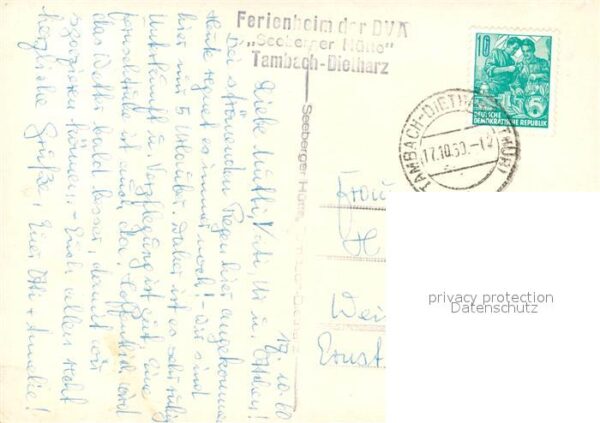 Ferienheim der DVA
„Seeberger Hütte"
Tambach-Dietharz
16
5
DEUTSCHE
DEMOKRATISCHE REPUBLIK
TAMBACH-DIETHARZ (THÜR)
17.10.60.-17
17.10.60
Liebe Mutti, Vati, u.
Bei strömendem Regen hier angekommen
heute regnet es immer noch! Wir sind
hier nur 5 Urlauber. Daher ist es sehr ruhig
Unterkunft u. Verpflegung ist gut. Eine
ist auch da. Hoffentlich wird
das Wetter bald besser, damit wir
können. - Euch allen recht
herzliche Grüße, Eure + Amelie!
Seeberger Hütte,
Frau
H
Wei
Ernst
privacy protection
Datenschutz